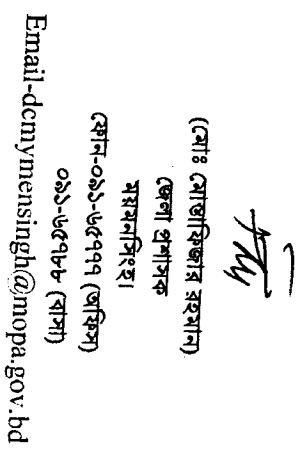 (মোঃ মোস্তাফিজার রহমান)
জেলা প্রশাসক
ময়মনসিংহ।
ফোন-০৯১-৬৫৭৭৭ (অফিস)
০৯১-৬৫৭৮৮ (বাসা)
Email-dcmymensingh@mopa.gov.bd